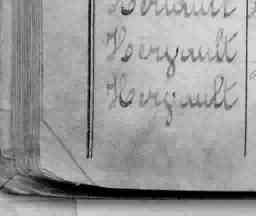 Hérault
Hergault
Hergault